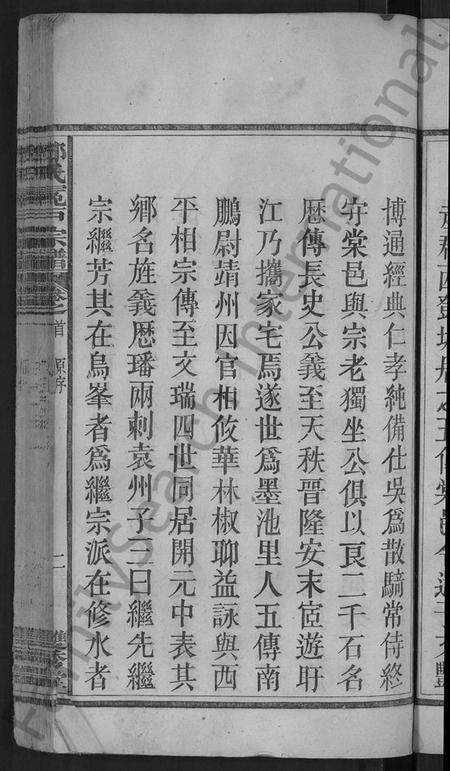 博通經典仁孝純備仕吳爲散騎常侍終
守棠邑與宗老獨坐公俱以良二千石名
厯傳長史公義至天秩晉隆安末宦遊盱
江乃攜家宅焉遂世爲墨池里人五傳南
鵬尉靖州因官相攸華林椒聊益詠與西
平相宗傳至文瑞四世同居開元中表其
鄉名旌義厯璠兩刺袁州子三曰繼先繼
宗繼芳其在烏峯者爲繼宗派在修水者
氏 宗譜 卷之首 原序 二
FamilySearch International